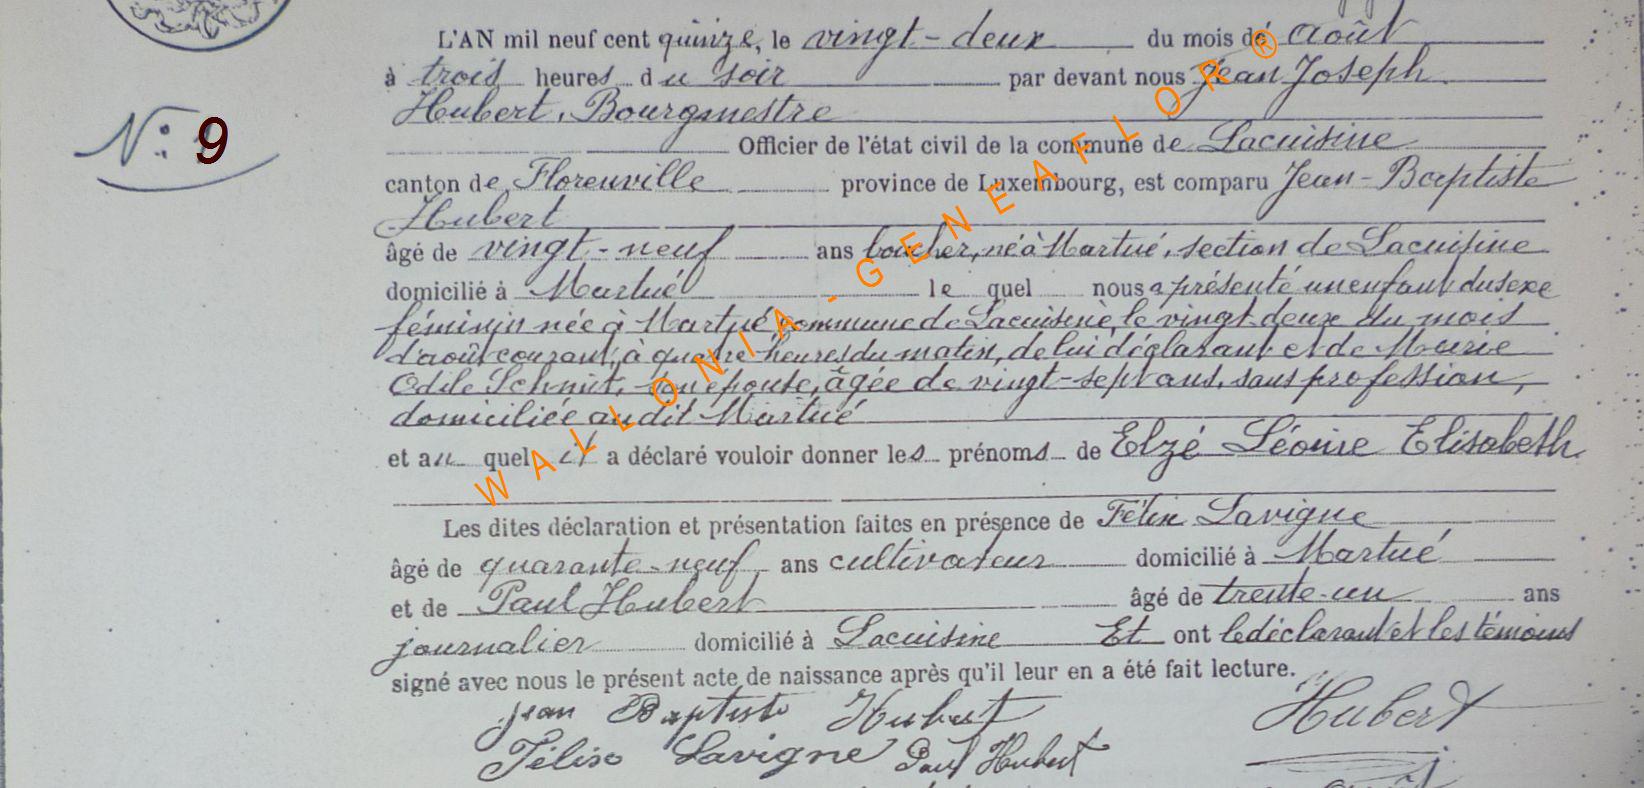 L'AN mil neuf cent quinze, le vingt-deux du mois de août
à trois heures du soir par devant nous Jean Joseph
Hubert, Bourgmestre
N°: 9
Officier de l'état civil de la commune de Lacuisine
canton de Florenville province de Luxembourg, est comparu Jean-Baptiste
Hubert
âgé de vingt-neuf ans boucher, né à Martué, section de Lacuisine
domicilié à Martué le quel nous a présenté un enfant du sexe
féminin née à Martué commune de Lacuisine, le vingt deux du mois
d'août courant, à quatre heures du matin, de lui déclarant et de Marie
Odile Schmit, son épouse, âgée de vingt-sept ans, sans profession,
domiciliée au dit Martué
et au quel il a déclaré vouloir donner les prénoms de Elzé Léonie Elisabeth
Les dites déclaration et présentation faites en présence de Félix Lavigne
âgé de quarante-neuf ans cultivateur domicilié à Martué
et de Paul Hubert âgé de trente-un ans
journalier domicilié à Lacuisine Et ont le déclarant et les témoins
signé avec nous le présent acte de naissance après qu'il leur en a été fait lecture.
Jean Baptiste Hubert Hubert
Félix Lavigne Paul Hubert
WALLONIA-GENEAFLOR®